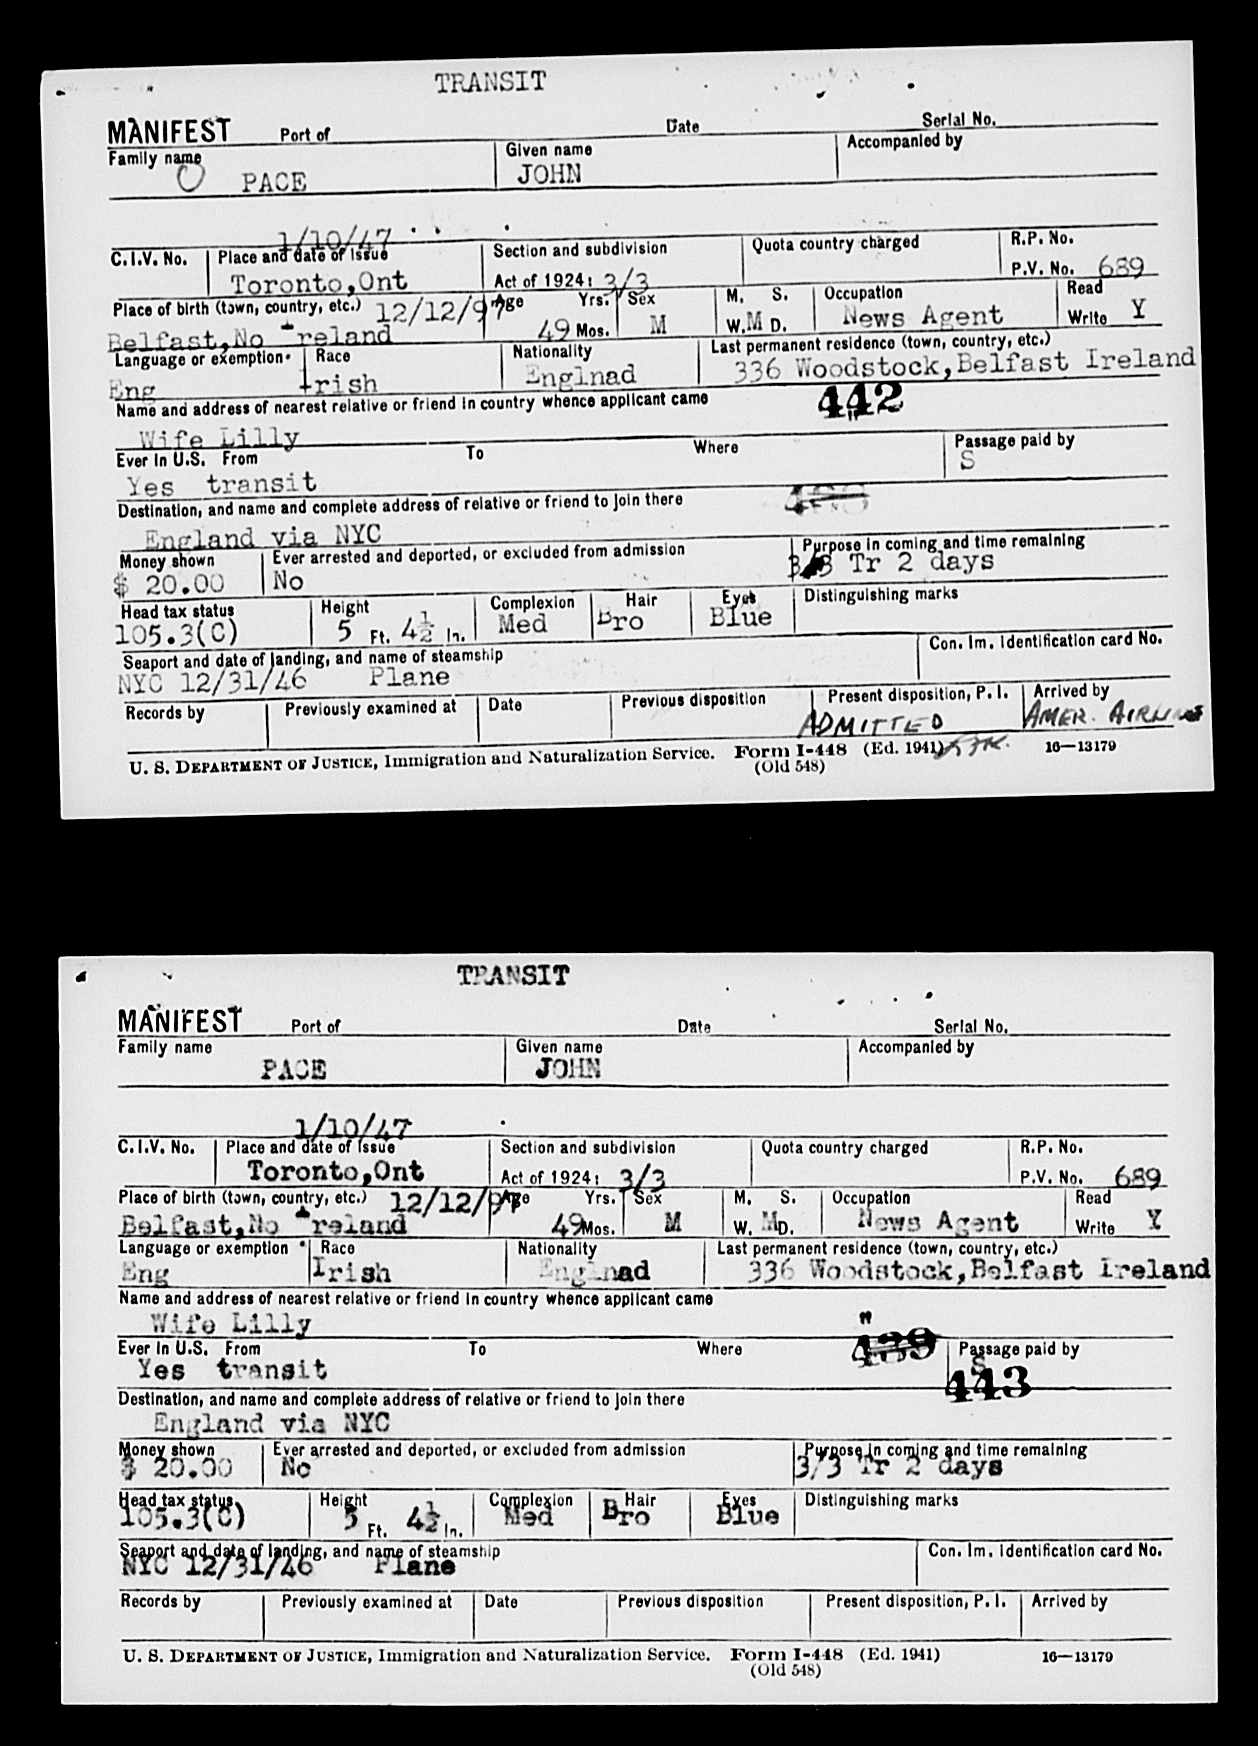 TRANSIT
MANIFEST Port of Date Serial No.
Family name Given name Accompanied by
O PACE JOHN
1/10/47
C.I.V. No. Place and date of issue Section and subdivision Quota country charged R.P. No.
Toronto,Ont Act of 1924: 3/3 P.V. No. 689
Place of birth (town, country, etc.) 12/12/97 Age Yrs. Sex M. S. Occupation Read
Belfast,No Ireland 49 Mos. M W. M D. News Agent Write Y
Language or exemption Race Nationality Last permanent residence (town, country, etc.)
Eng Irish Englnad 336 Woodstock,Belfast Ireland
Name and address of nearest relative or friend in country whence applicant came 442
Wife Lilly
Ever in U.S. From To Where Passage paid by
Yes transit S
Destination, and name and complete address of relative or friend to join there
England via NYC
Money shown Ever arrested and deported, or excluded from admission Purpose in coming and time remaining
$ 20.00 No 3/3 Tr 2 days
Head tax status Height Complexion Hair Eyes Distinguishing marks
105.3(C) 5 Ft. 4½ In. Med Bro Blue
Seaport and date of landing, and name of steamship Con. Im. Identification card No.
NYC 12/31/46 Plane
Records by Previously examined at Date Previous disposition Present disposition, P. I. Arrived by
ADMITTED AMER. AIRLINES
U. S. DEPARTMENT OF JUSTICE, Immigration and Naturalization Service. Form I-448 (Ed. 1941) 16—13179
(Old 548)
TRANSIT
MANIFEST Port of Date Serial No.
Family name Given name Accompanied by
PACE JOHN
1/10/47
C.I.V. No. Place and date of issue Section and subdivision Quota country charged R.P. No.
Toronto,Ont Act of 1924: 3/3 P.V. No. 689
Place of birth (town, country, etc.) 12/12/97 Age Yrs. Sex M. S. Occupation Read
Belfast,No Ireland 49 Mos. M W. M D. News Agent Write Y
Language or exemption Race Nationality Last permanent residence (town, country, etc.)
Eng Irish Englnad 336 Woodstock,Belfast Ireland
Name and address of nearest relative or friend in country whence applicant came
Wife Lilly "
Ever in U.S. From To Where 439 Passage paid by
Yes transit S
443
Destination, and name and complete address of relative or friend to join there
England via NYC
Money shown Ever arrested and deported, or excluded from admission Purpose in coming and time remaining
$ 20.00 No 3/3 Tr 2 days
Head tax status Height Complexion Hair Eyes Distinguishing marks
105.3(C) 5 Ft. 4½ In. Med Bro Blue
Seaport and date of landing, and name of steamship Con. Im. Identification card No.
NYC 12/31/46 Plane
Records by Previously examined at Date Previous disposition Present disposition, P. I. Arrived by
U. S. DEPARTMENT OF JUSTICE, Immigration and Naturalization Service. Form I-448 (Ed. 1941) 16—13179
(Old 548)